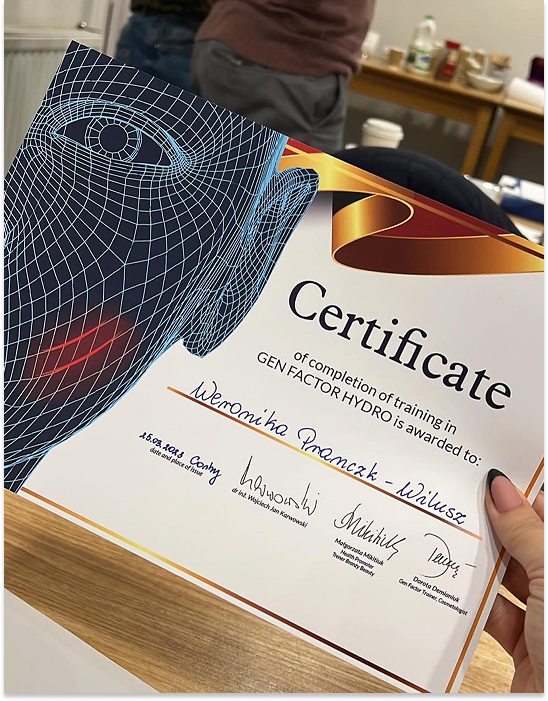 Certificate
of completion of training in
GEN FACTOR HYDRO is awarded to:
Weronika Pranczk - Wilusz
25.03.2023 Corby
date and place of issue
dr inż. Wojciech Jan Karwowski
Małgorzata Mikitiuk
Health Promoter
Trener Branży Beauty
Dorota Demianiuk
Gen Factor Trainer, Cosmetologist